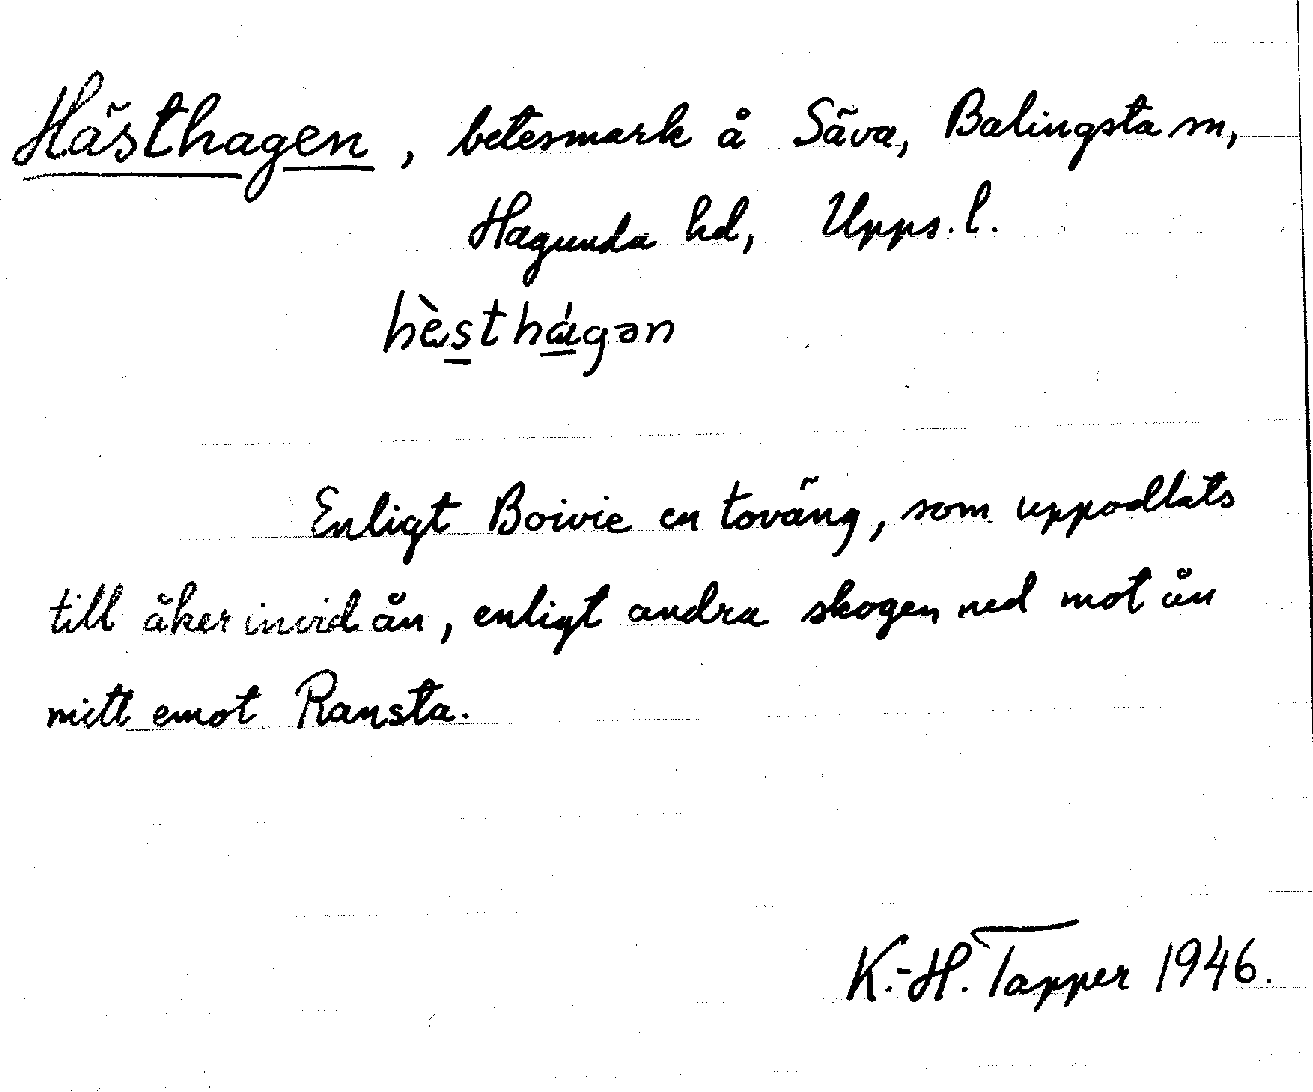 Hästhagen, betesmark å Säva, Balingsta sn,
Hagunda hd, Upps. l.
hèsthágən
Enligt Boivie en toväng, som uppodlats
till åker invid ån, enligt andra skogen ned mot ån
mitt emot Ransta.
K.-H. Tapper 1946.